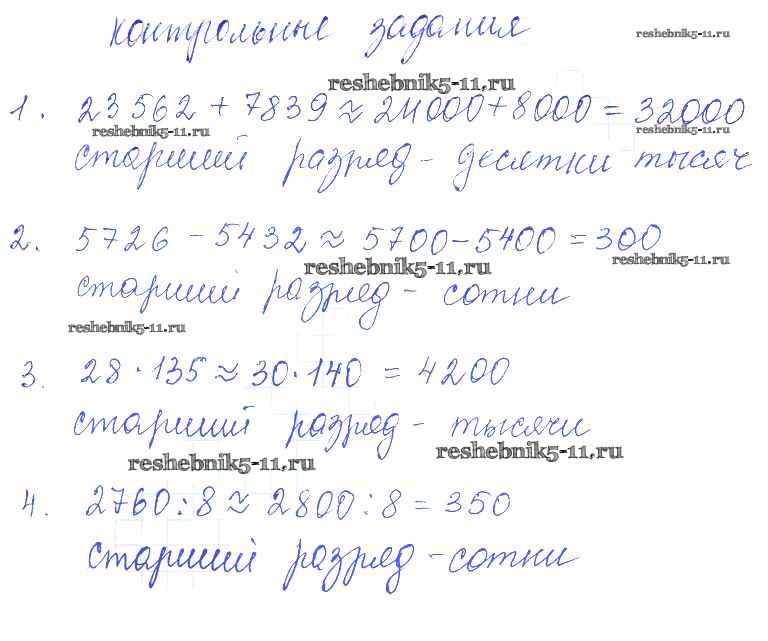 контрольные задания
reshebnik5-11.ru
reshebnik5-11.ru
1. 23 562 + 7839 ≈ 24000 + 8000 = 32000
reshebnik5-11.ru
reshebnik5-11.ru
старший разряд - десятки тысяч
2. 5726 - 5432 ≈ 5700 - 5400 = 300
reshebnik5-11.ru
reshebnik5-11.ru
старший разряд - сотни
reshebnik5-11.ru
3. 28 · 135 ≈ 30 · 140 = 4200
старший разряд - тысячи
reshebnik5-11.ru
reshebnik5-11.ru
4. 2760 : 8 ≈ 2800 : 8 = 350
старший разряд - сотни